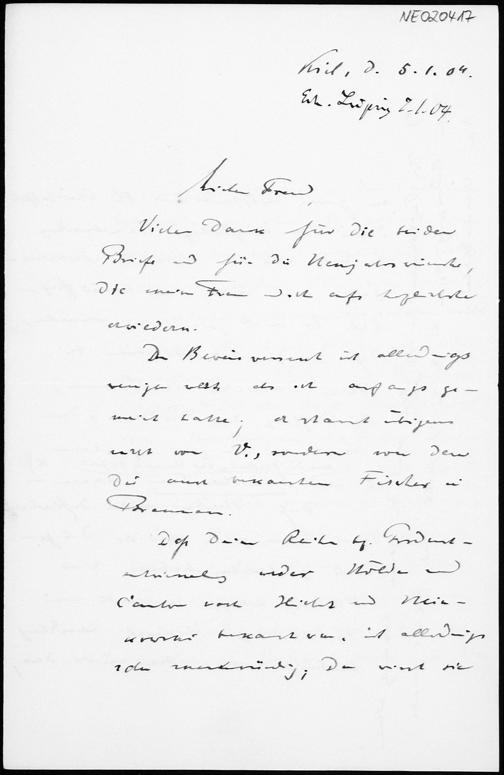 NE020417
Kiel, d. 5.1.04.
Erh. Leipzig 7.1.04.
Lieber Freund,
Vielen Dank für die beiden
Briefe und für die Neujahrswünsche,
die meine Frau und ich aufs herzlichste
erwiedern.
Der Beweisversuch ist allerdings
weniger werth als ich anfangs ge-
meint hatte; er stammt übrigens
nicht von V., sondern von dem
Dir auch bekannten Fischer in
Bremen.
Daß Deine Reihe
weder Hölder und
Cantor noch Hilbert und Min-
kowski bekannt war, ist allerdings
sehr merkwürdig; Du wirst sie